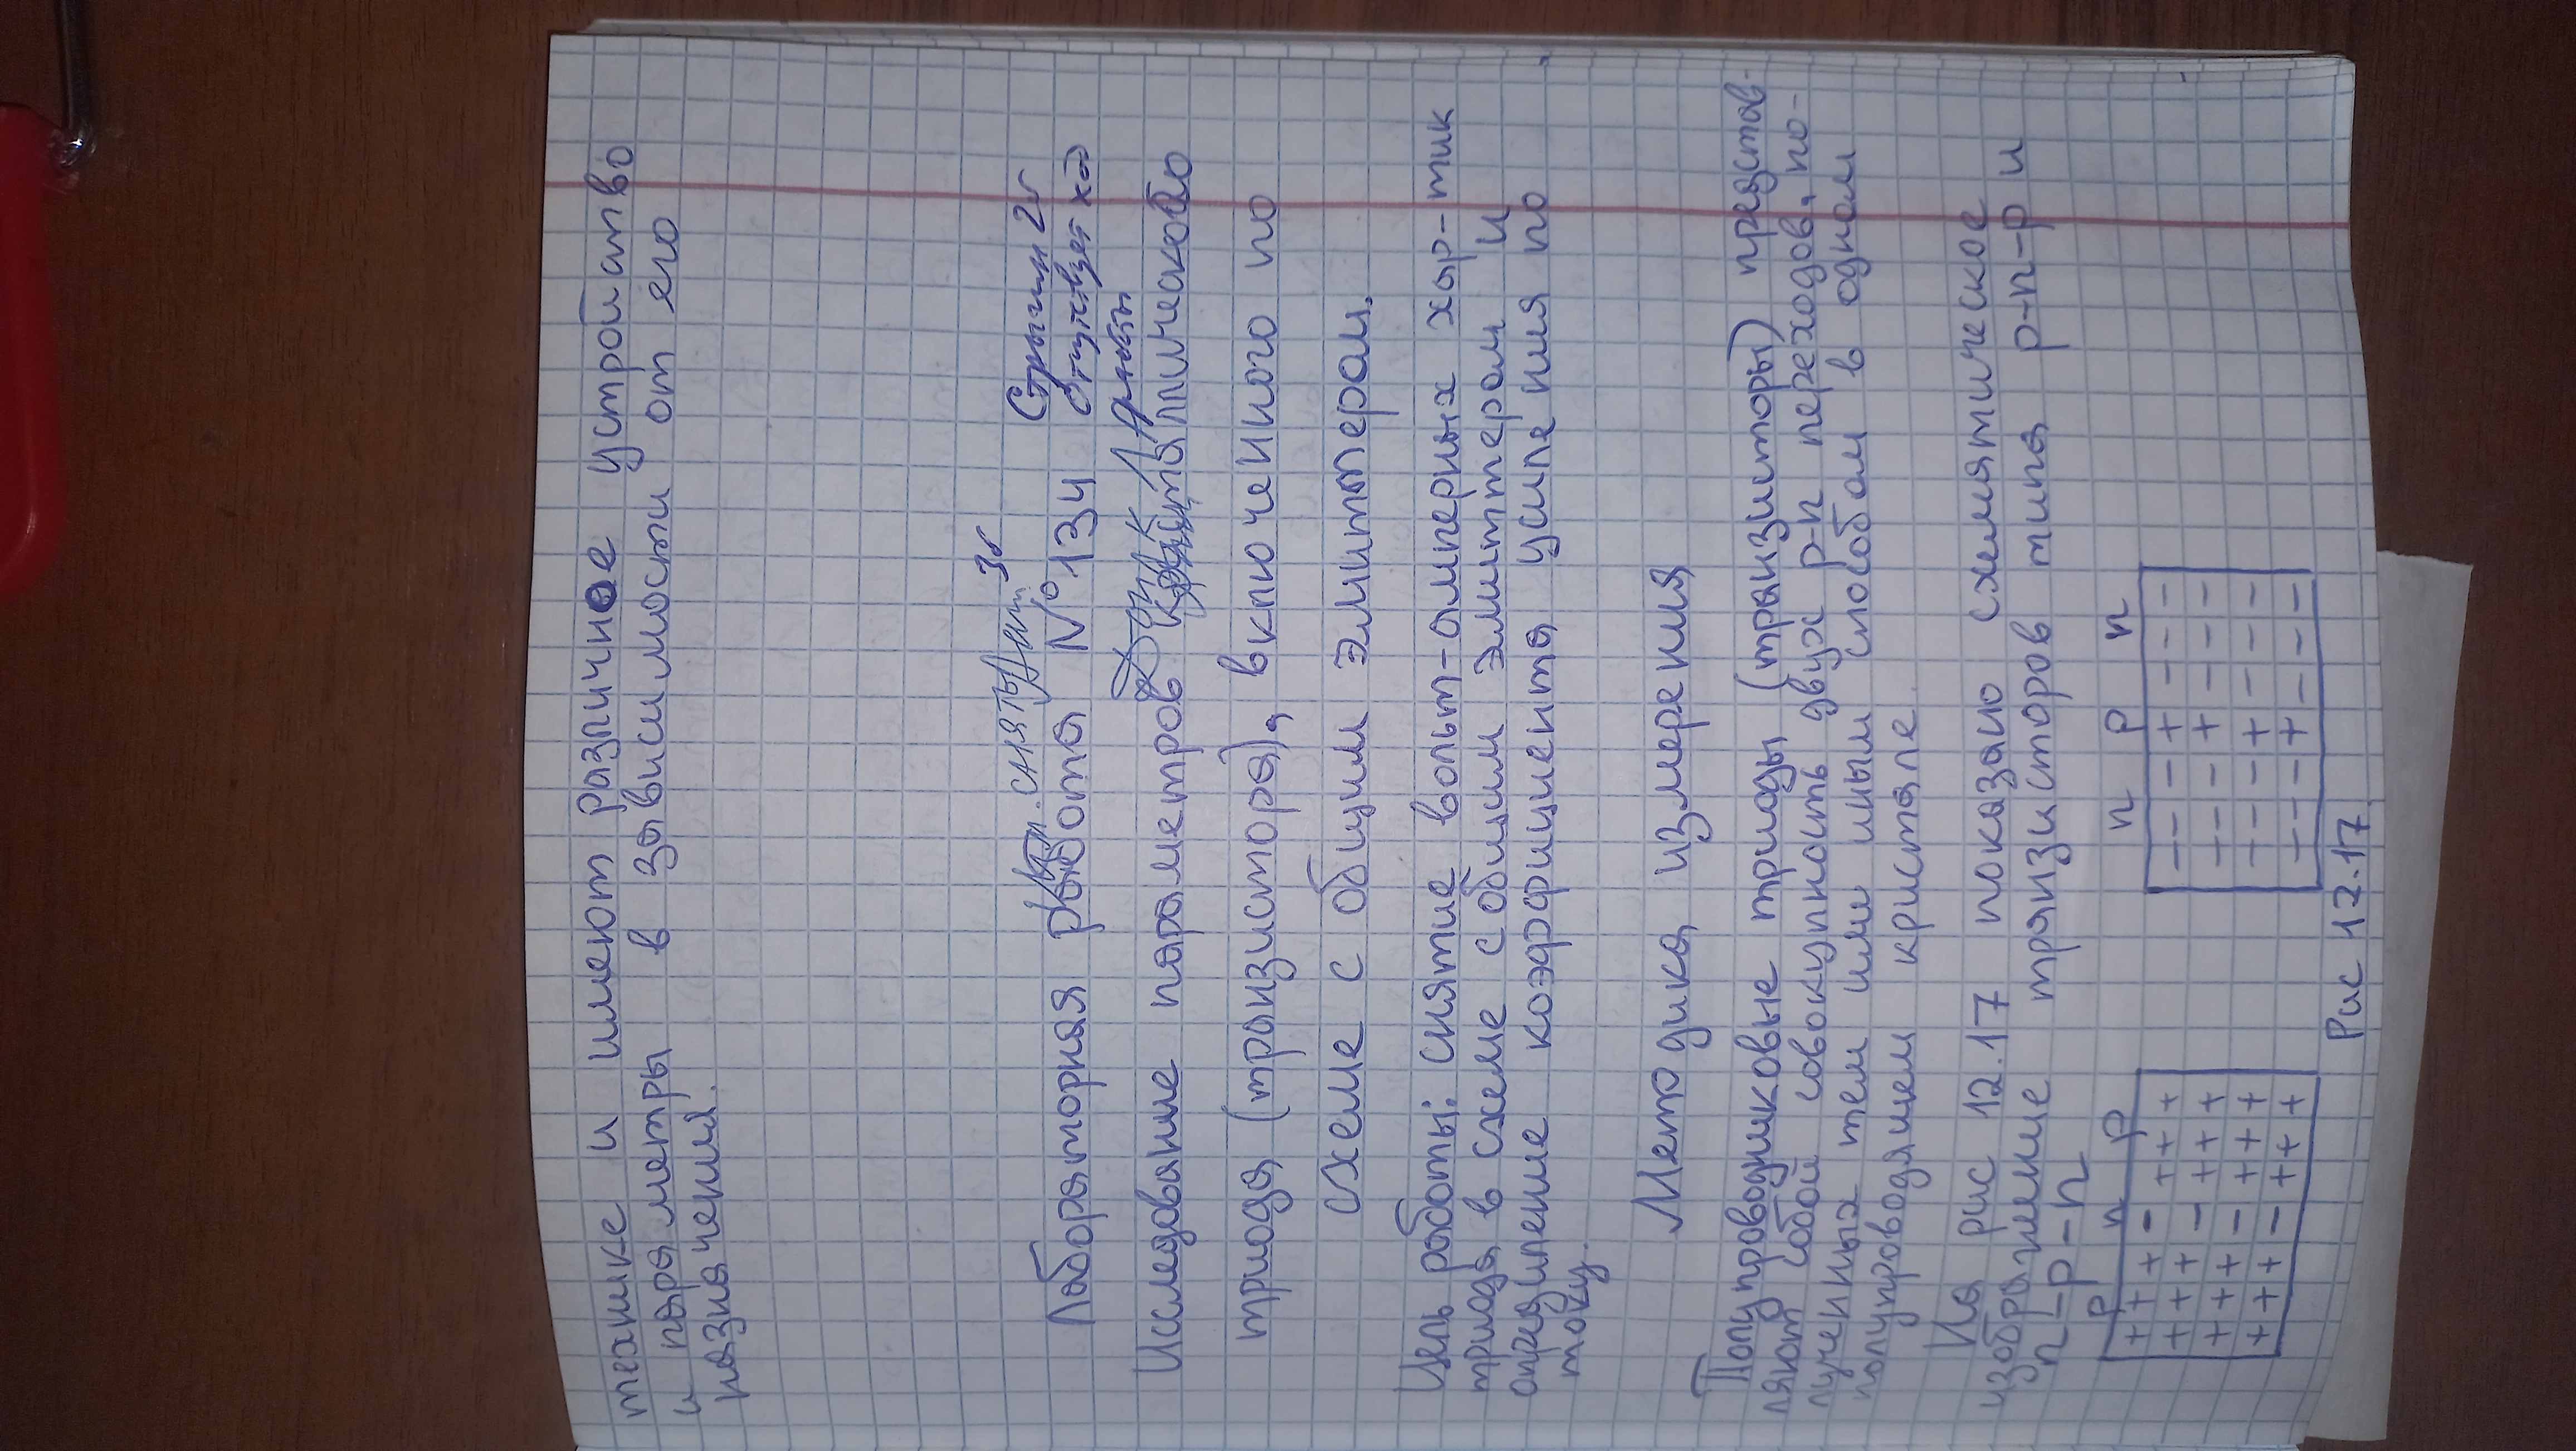 технике и имеют различное устройство
и параметры в зависимости от его
назначения.
Изм. сняты 3б
Стрыгин 2б
Лабораторная работа №134
отсутствует ход
Доп. к л/р работы
Исследование параметров кристаллического
триода (транзистора), включенного по
схеме с общим эмиттером.
Цель работы: снятие вольт-амперных хар-тик
триода в схеме с общим эмиттером и
определение коэффициента усиления по
току.
Методика измерения
Полупроводниковые триоды (транзисторы) представ-
ляют собой совокупность двух p-n переходов, по-
лученных тем или иным способом в одном
полупроводящем кристале.
На рис 12.17 показано схематическое
изображение транзисторов типа p-n-p и
n-p-n
p n p
n p n
+ + + - + + +
+ + + - + + +
+ + + - + + +
+ + + - + + +
- - - + - - -
- - - + - - -
- - - + - - -
- - - + - - -
Рис 12.17.